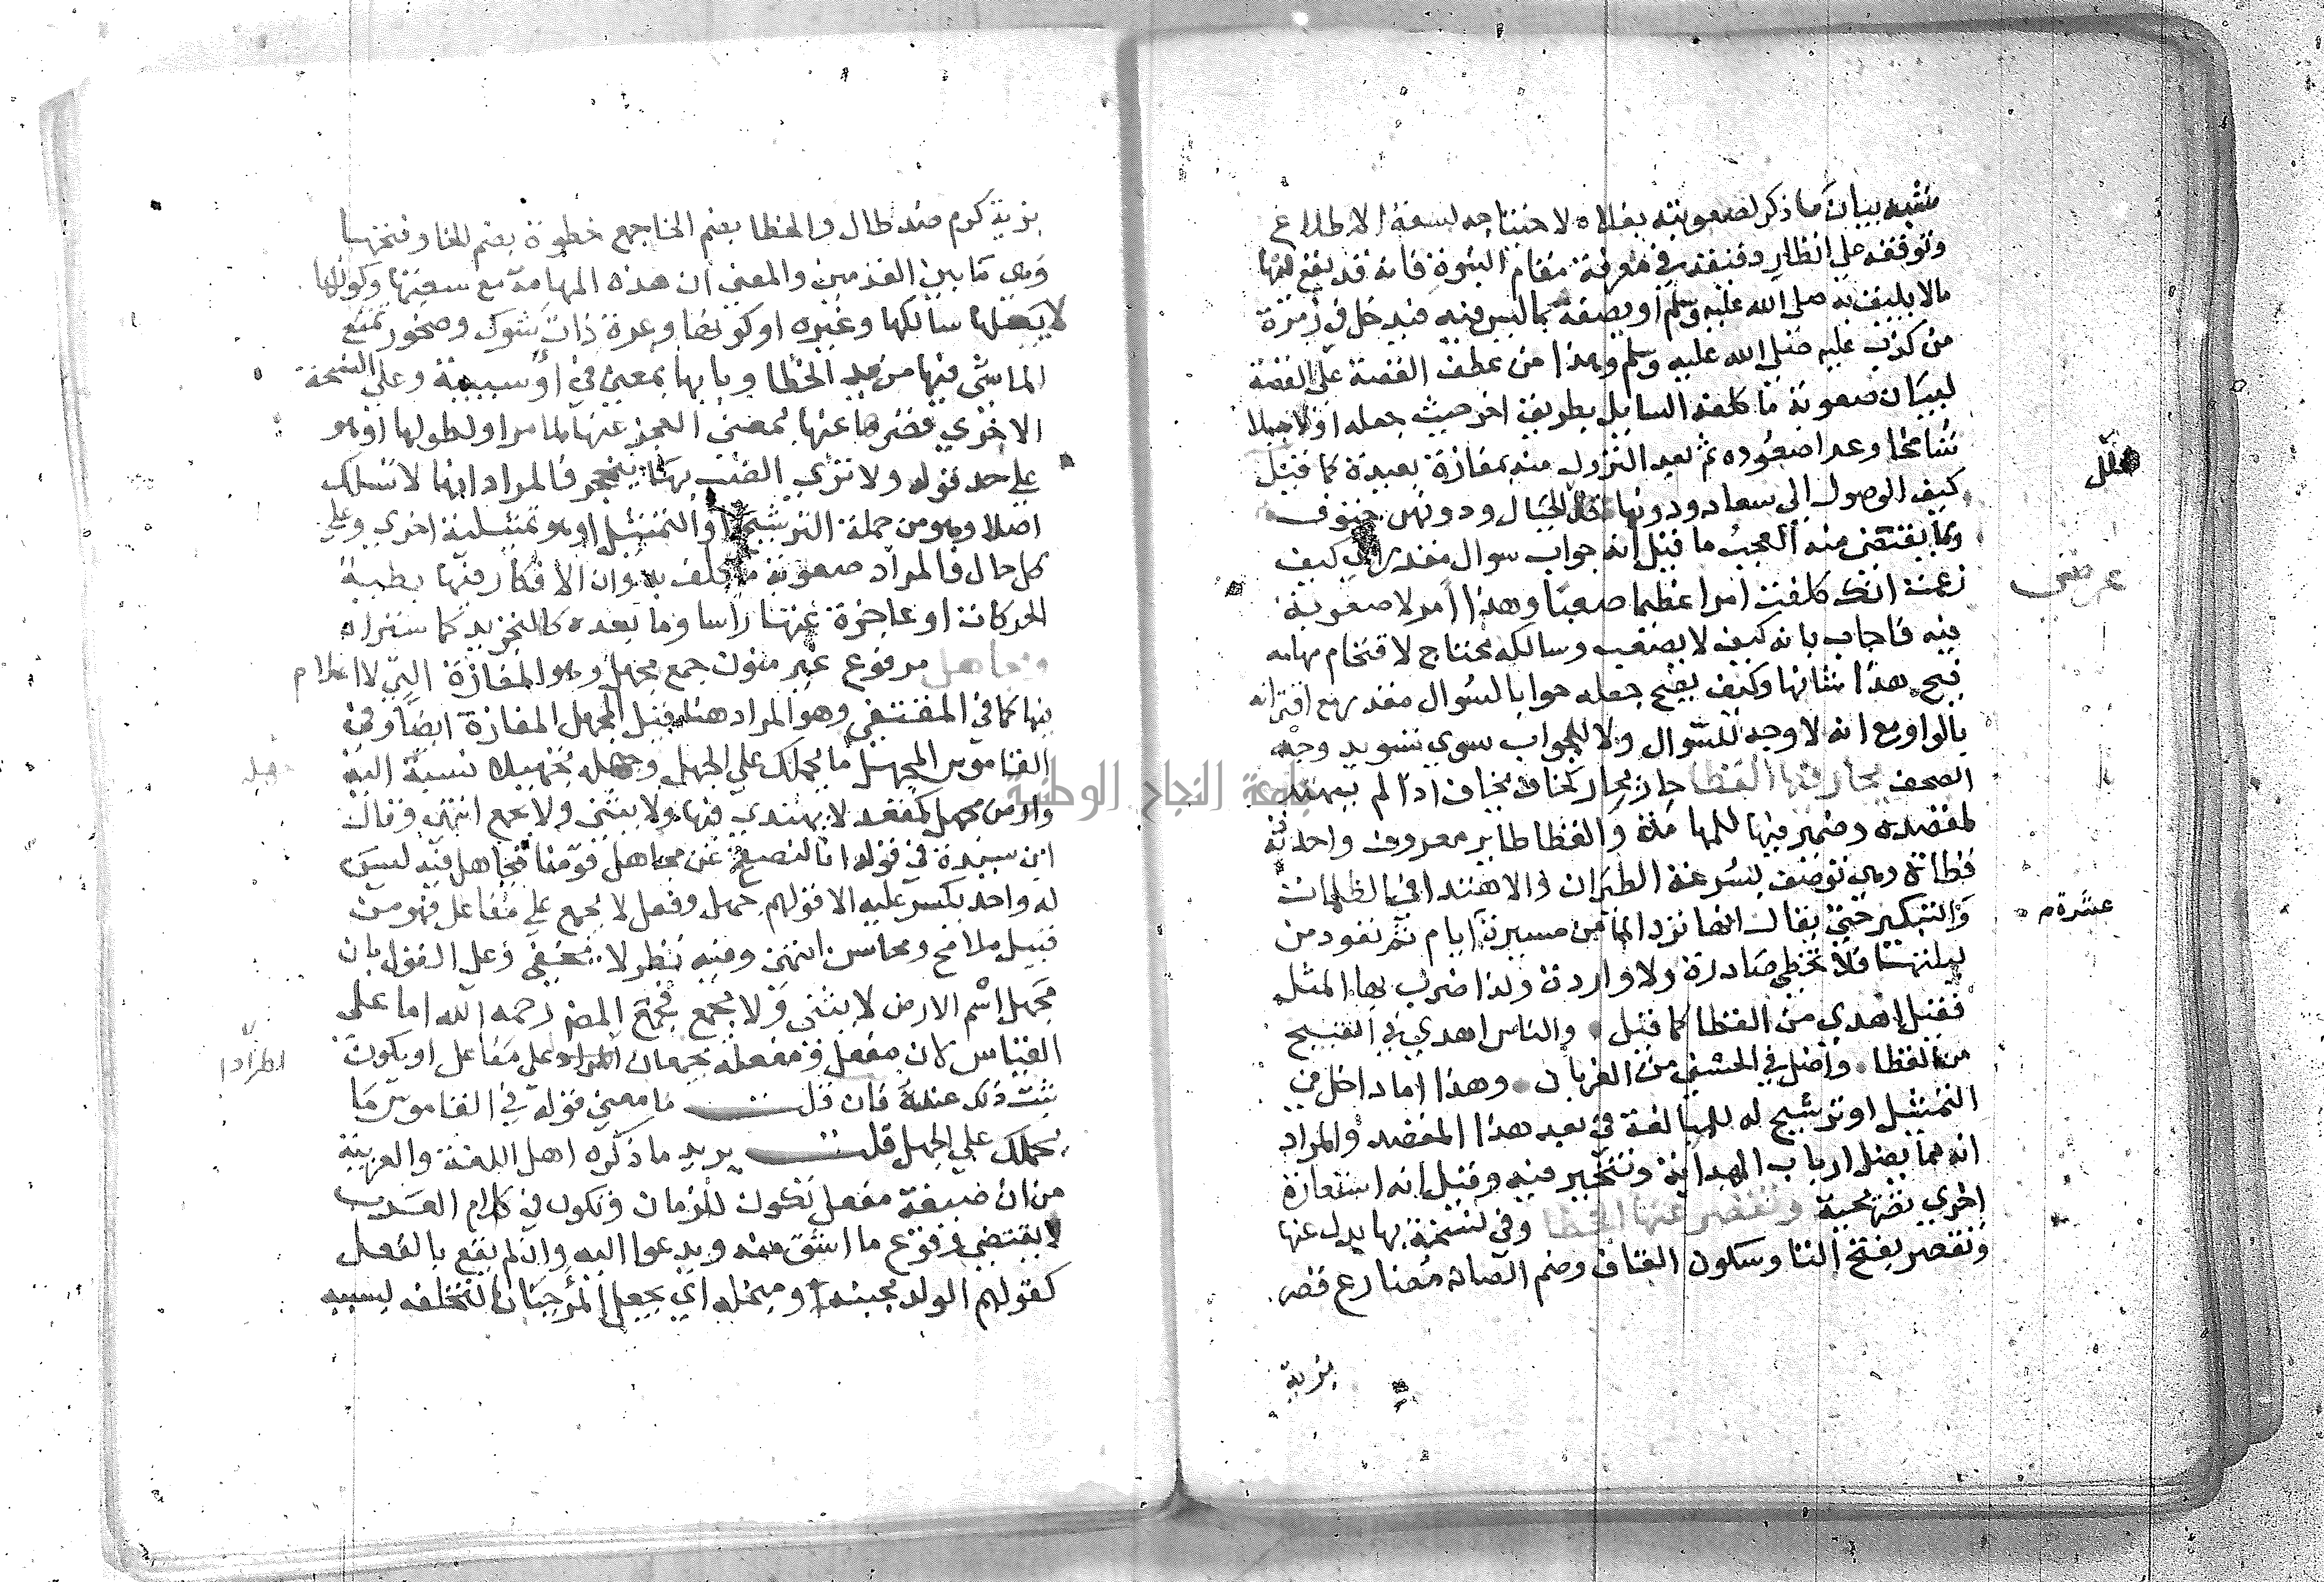 شبه بيان ما ذكر لصعوبته بفلاه لاحتياجه لسعة الاطلاع
وتوقفه على انظار دقيقة في معرفة مقام النبوة فانه قد يقع فيها
مالا يليق به صلى الله عليه وسلم او يصفه بما ليس فيه فيدخل في زمرة
من كذب عليه صلى الله عليه وسلم وهذا من عطف القصة على القصة
لبيان صعوبة ما كلفه السايل بطريق اخر حيث جعله اولا جبلا
شامخا وعرا صعوده ثم بعد النزول منه بمفازة بعيدة كما قيل
كيف الوصول الى سعاد ودونها قلل الجبال ودونهن حتوف
قلل
ومما يقتضى منه العجب ما قيل انه جواب سوال مقدر اي كيف
زعمت انك كلفت امرا عظيما صعبا وهذا امر لا صعوبة
عرضى
فيه فاجاب بانه كيف لا يصعب وسالكه محتاج لاقتحام مهامه
فيح هذا شانها وكيف يصح جعله جوابا لسوال مقدر مع اقترانه
بالواو مع انه لا وجه للسوال ولا للجواب سوى تسويد وجه
الصحف تحار فيها القطا حار يحار كخاف يخاف اذا لم يهتد
لمقصده وضمير فيها للمهامة والقطا طاير معروف واحدته
قطاة وهي توصف بسرعة الطيران والاهتدا في الظلمات
والتبكير حتى يقال انها ترد الما من مسيرة ايام ثم تعود من
عشرة م
ليلتها فلا تخطي صادرة ولا واردة ولذا ضرب بها المثل
فقيل اهدى من القطا كما قيل والناس اهدى في القبيح
من القطا واضل في الحسنى من الغربان وهذا اما داخل في
التمثيل او ترشيح له للمبالغة في بعد هذا المقصد والمراد
انه مما يضل ارباب الهداية وتتحير فيه وقيل انه استعارة
اخرى تصريحية وتقصر عنها الخطا وفي نسخة بها بدل عنها
وتقصر بفتح التا وسكون القاف وضم الصاد مضارع قصر
بزنة
بزنة كرم ضد طال والخطا بضم الخا جمع خطوة بضم الخا وفتحها
وهي ما بين القدمين والمعنى ان هذه المهامة مع سعتها وكونها
لا يصلها سالكها وغيره او كونها وعرة ذات شوك وصخور تمنع
الماشي فيها من مد الخطا وبابها بمعنى في او سببية وعلى النسخة
الاخرى قصرها عنها بمعنى العجز عنها لما مر او لطولها او هو
على حد قوله ولا ترى الضب بها ينجحر فالمراد انها لا تسلك
اصلا وهو من جملة الترشيح او التمثيل او هو تمثيلية اخرى وعلى
كل حال فالمراد صعوبة ما كلف به وان الافكار فيها بطيئة
الحركات او عاجزة عنها راسا وما بعده كالتجريد كما ستراه
ومجاهل مرفوع غير منون جمع مجهل وهو المفازة التي لا اعلام
بها كما في المقتفى وهو المراد هنا وقيل المجهل المفازة ايضا وفي
القاموس المجهل ما يحملك على الجهل وجهله تجهيلا نسبة اليه
وارض مجهل كمقعد لا يهتدي فيها ولا يثنى ولا يجمع انتهى وقال
ابن سيدة في قوله انا لنصفح عن مجاهل قومنا مجاهل فيه ليس
له واحد يكسر عليه الا قولهم جهل وفعل لا يجمع على مفاعل فهو من
قبيل ملامح ومحاسن انتهى وفيه نظر لا يخفى وعلى القول بان
مجهل اسم الارض لا يثنى ولا يجمع فجمع المص رحمه الله اما على
القياس لان مفعل ومفعلة يجمعان على مفاعل او يكون
اطرادا
ثبت ذلك عنده فان قلت ما معنى قوله في القاموس ما
يحملك على الجهل قلت يريد ما ذكره اهل اللغة والعربية
من ان صيغة مفعل تكون للزمان وتكون في كلام العرب
لا يقتضي وقوع ما اشتق منه ويدعوا اليه وان لم يقع بالفعل
كقولهم الولد مجبنة ومبخلة اي يجعل المرء جبانا لتخلفه لسببه
جامعة النجاح الوطنية